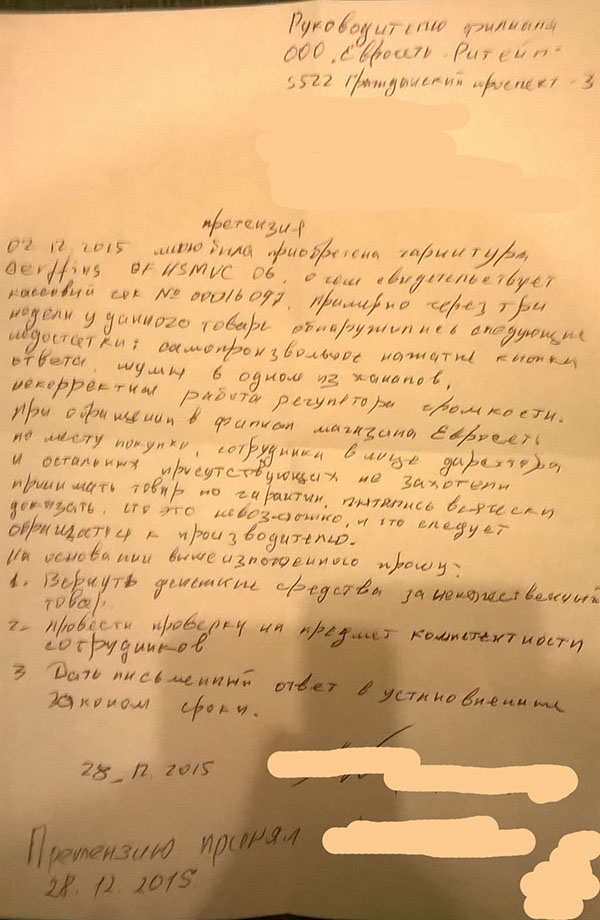 Руководителю филиала
ООО "Евросеть-Ритейл"
S522 Гражданский проспект - 3
претензия
02.12.2015 мною была приобретена гарнитура
Gerffins GFHSMVC 06, о чем свидетельствует
кассовый чек № 00016097. Примерно через три
недели у данного товара обнаружились следующие
недостатки: самопроизвольное нажатие кнопки
ответа, шумы в одном из каналов,
некорректная работа регулятора громкости.
При обращении в филиал магазина Евросеть
по месту покупки, сотрудники в лице директора
и остальных присутствующих не захотели
принимать товар по гарантии, пытались всячески
доказать, что это невозможно, и что следует
обращаться к производителю.
На основании вышеизложенного прошу:
1. Вернуть денежные средства за некачественный
товар.
2. Провести проверку на предмет компетентности
сотрудников
3 Дать письменный ответ в установленные
законом сроки.
28_12.2015
Претензию принял
28.12.2015.